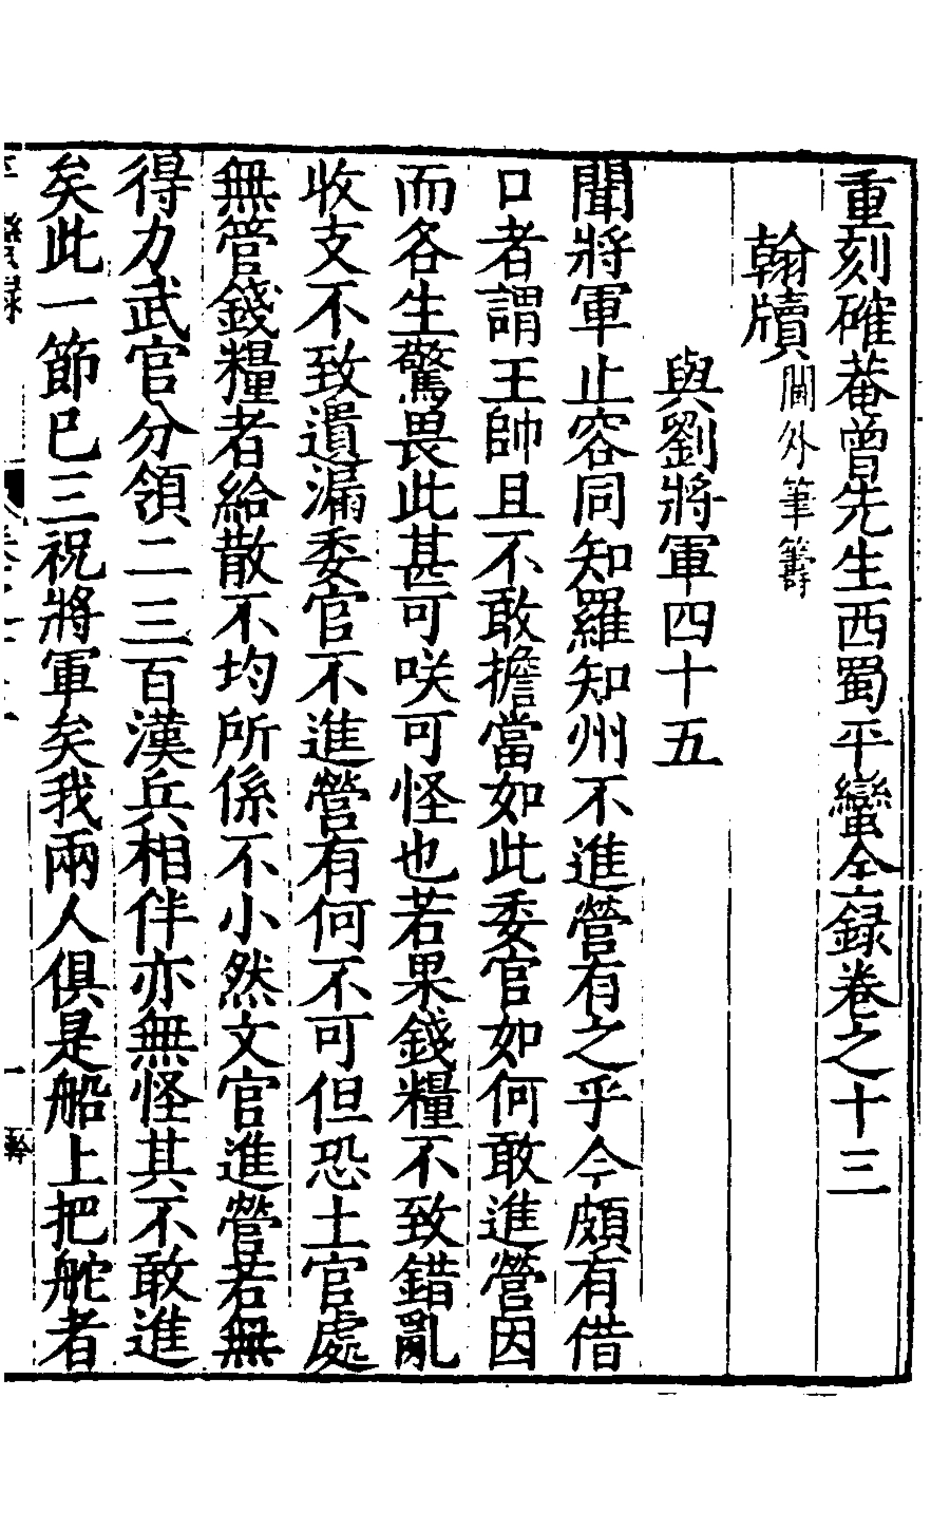 重刻確菴曾先生西蜀平蠻全錄卷之十三
翰牘閫外筆籌
與劉將軍四十五
聞將軍止容同知羅知州不進營有之乎今頗有借
口者謂王帥且不敢擔當如此委官如何敢進營因
而各生驚畏此甚可咲可怪也若果錢糧不致錯亂
收支不致遺漏委官不進營有何不可但恐土官處
無管錢糧者給散不均所係不小然文官進營若無
得力武官分領二三百漢兵相伴亦無怪其不敢進
矣此一節已三祝將軍矣我兩人俱是船上把舵者